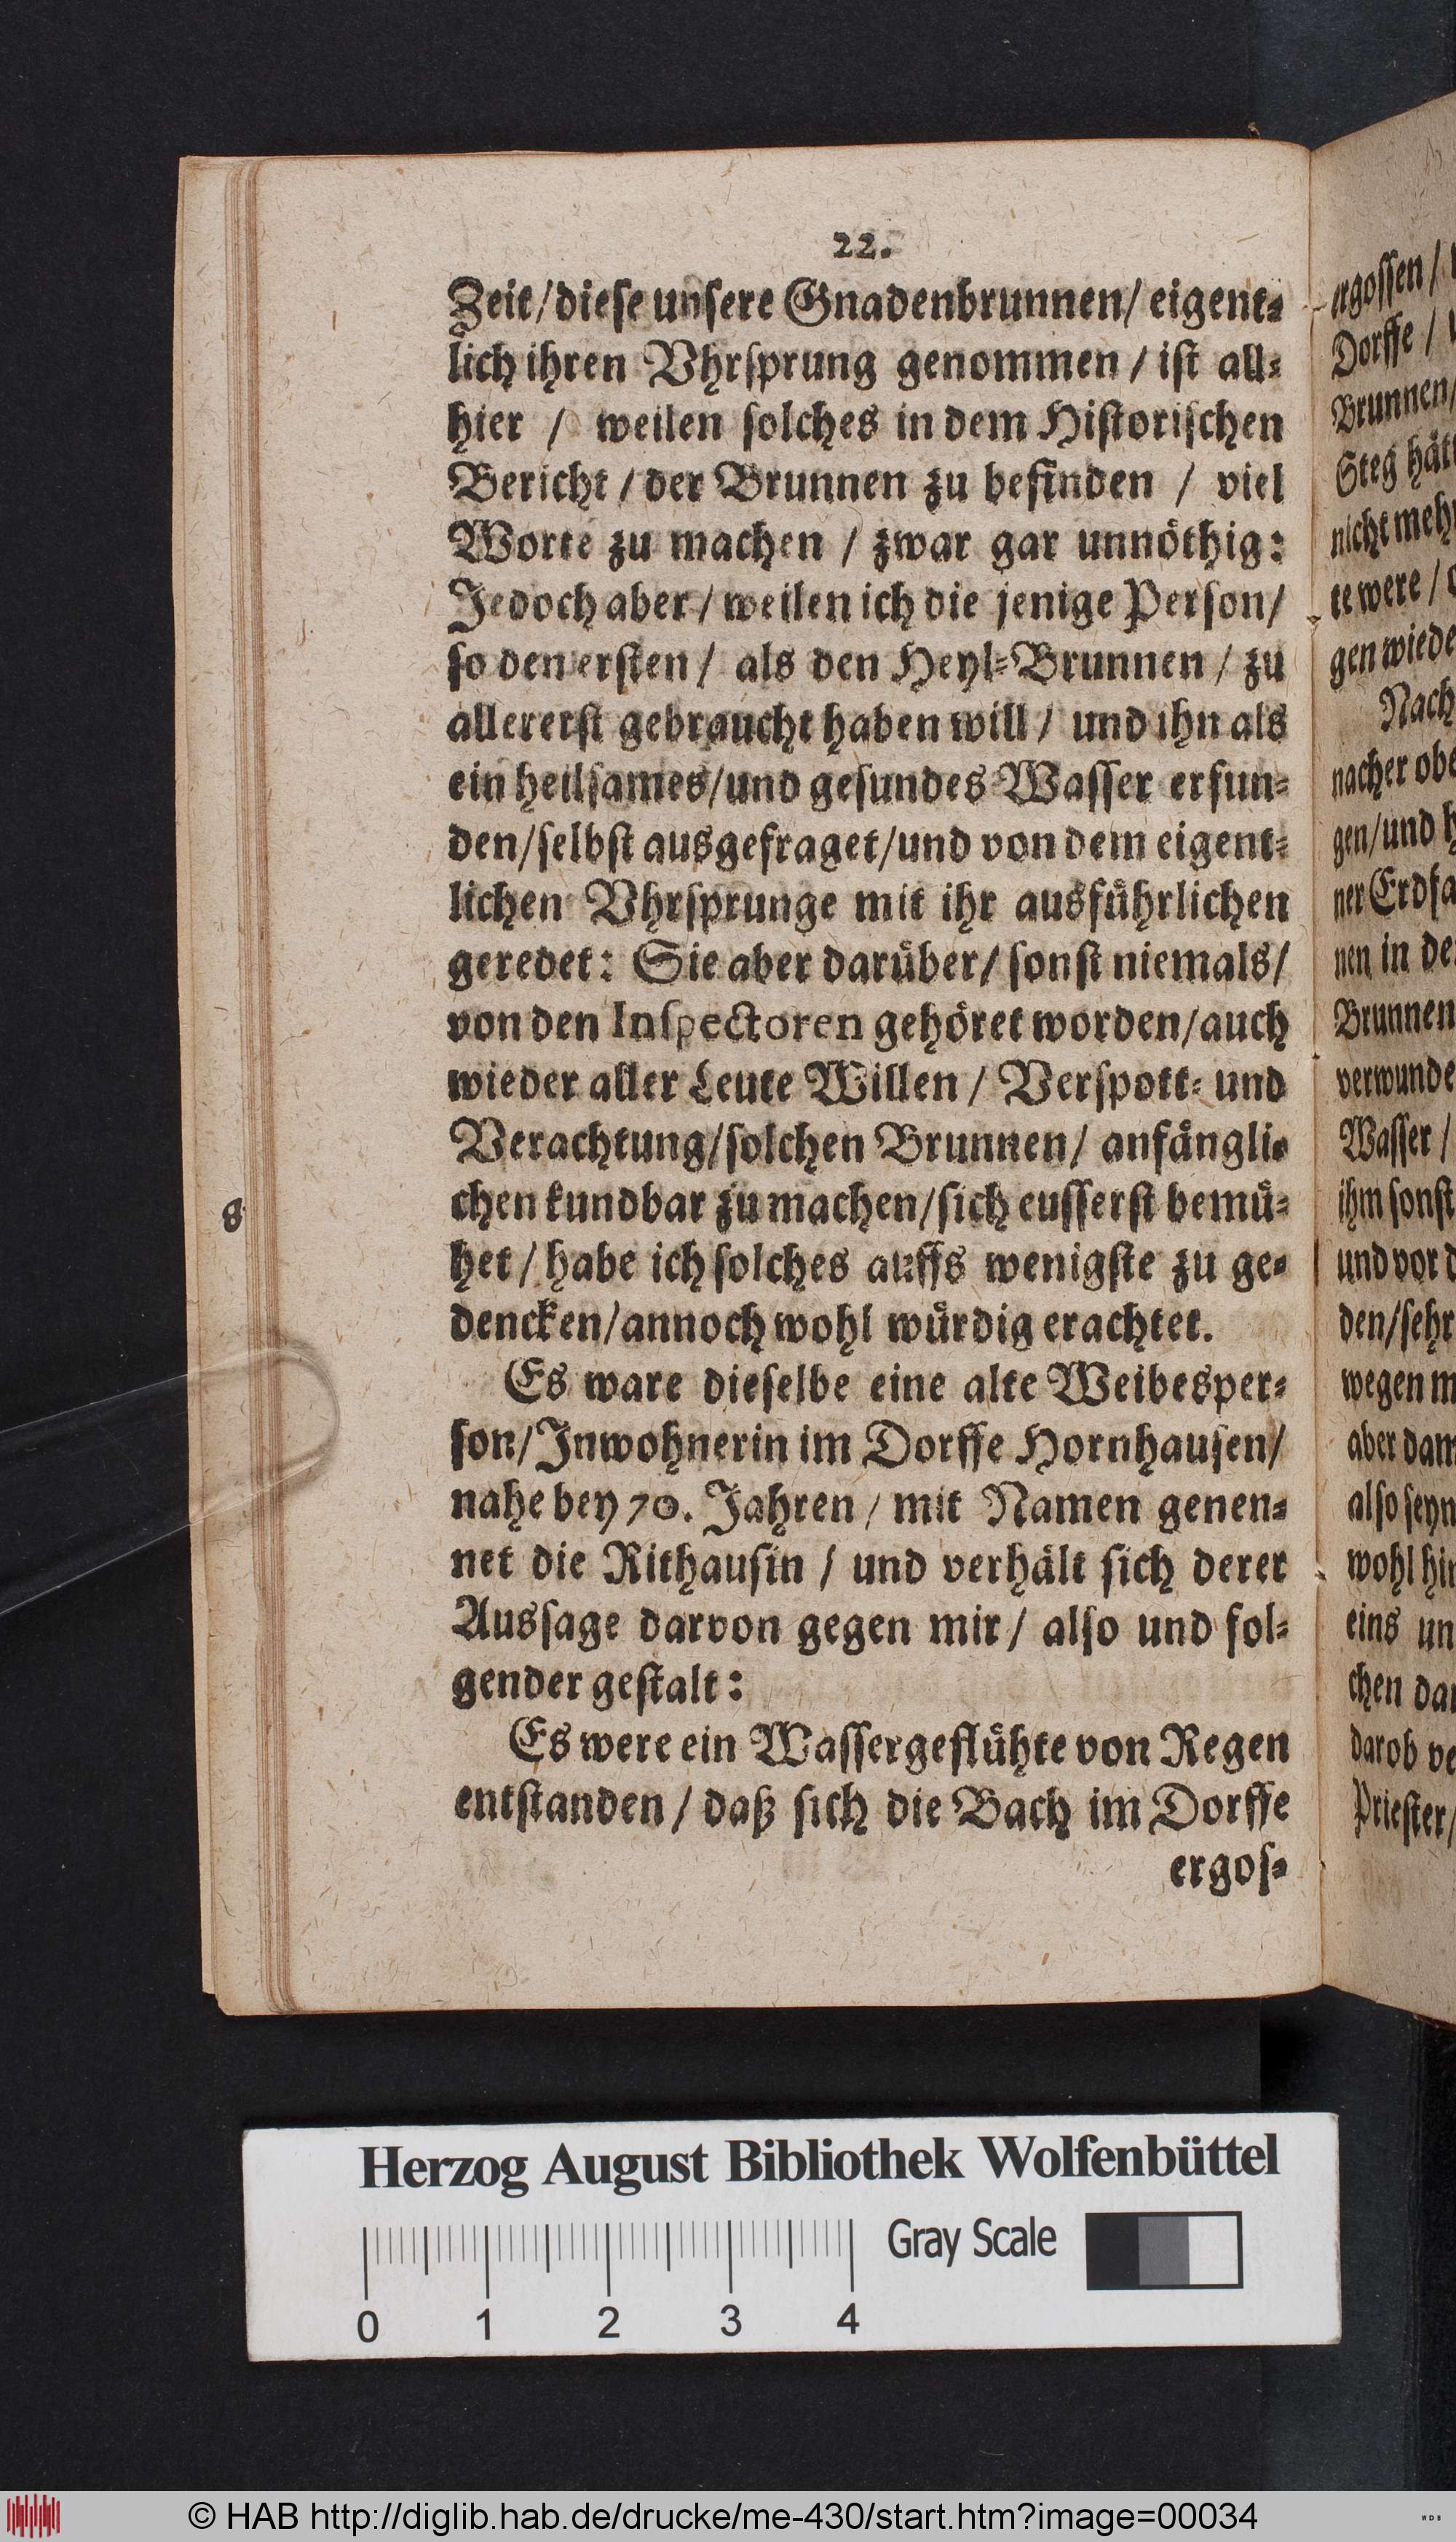 22.
Zeit/diese unsere Gnadenbrunnen/ eigent-
lich ihren Vhrsprung genommen / ist all-
hier / weilen solches in dem Historischen
Bericht / der Brunnen zu befinden / viel
Worte zu machen / zwar gar unnöthig:
Jedoch aber / weilen ich die jenige Person/
so den ersten / als den Heyl-Brunnen / zu
allererst gebraucht haben will / und ihn als
ein heilsames/und gesundes Wasser erfun-
den/selbst ausgefraget/und von dem eigent-
lichen Vhrsprunge mit ihr ausführlichen
geredet: Sie aber darüber/ sonst niemals/
von den Inspectoren gehöret worden/auch
wieder aller Leute Willen / Verspott- und
Verachtung/solchen Brunnen/ anfängli-
chen kundbar zu machen/sich eusserst bemü-
het / habe ich solches auffs wenigste zu ge-
dencken/annoch wohl würdig erachtet.
Es ware dieselbe eine alte Weibesper-
son/Jnwohnerin im Dorffe Hornhausen/
nahe bey 70. Jahren / mit Namen genen-
net die Rithausin / und verhält sich derer
Aussage darvon gegen mir / also und fol-
gender gestalt:
Es were ein Wassergeflühte von Regen
entstanden / daß sich die Bach im Dorffe
ergos-
8
ergossen /
Dorffe /
Brunnen/
Steg
nicht
te were /
gen
Nach
nacher
gen/und
ner
nen in
Brunnen
Wasser /
ihm sonst
und vor
den/sehr
wegen
aber
also seyn
wohl
eins
chen
darob
Priester/
Herzog August Bibliothek Wolfenbüttel
Gray Scale
0 1 2 3 4
© HAB http://diglib.hab.de/drucke/me-430/start.htm?image=00034